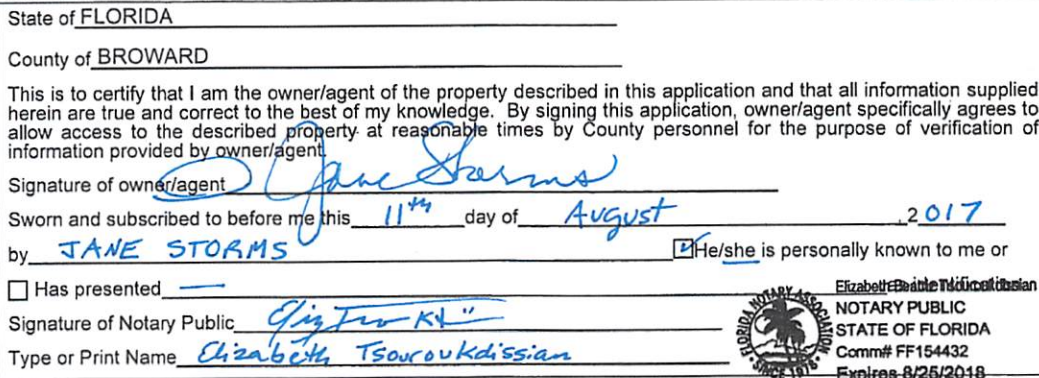 State of FLORIDA
County of BROWARD
This is to certify that I am the owner/agent of the property described in this application and that all information supplied
herein are true and correct to the best of my knowledge. By signing this application, owner/agent specifically agrees to
allow access to the described property at reasonable times by County personnel for the purpose of verification of
information provided by owner/agent.
Signature of owner/agent Jane Storms
Sworn and subscribed to before me this 11th day of August , 2017
by JANE STORMS ☑ He/she is personally known to me or
☐ Has presented —
Elizabeth
Signature of Notary Public
NOTARY PUBLIC
STATE OF FLORIDA
Type or Print Name Elizabeth Tsouroukdissian
Comm# FF154432
Expires 8/25/2018
FLORIDA NOTARY ASSOCIATION
SINCE 1978